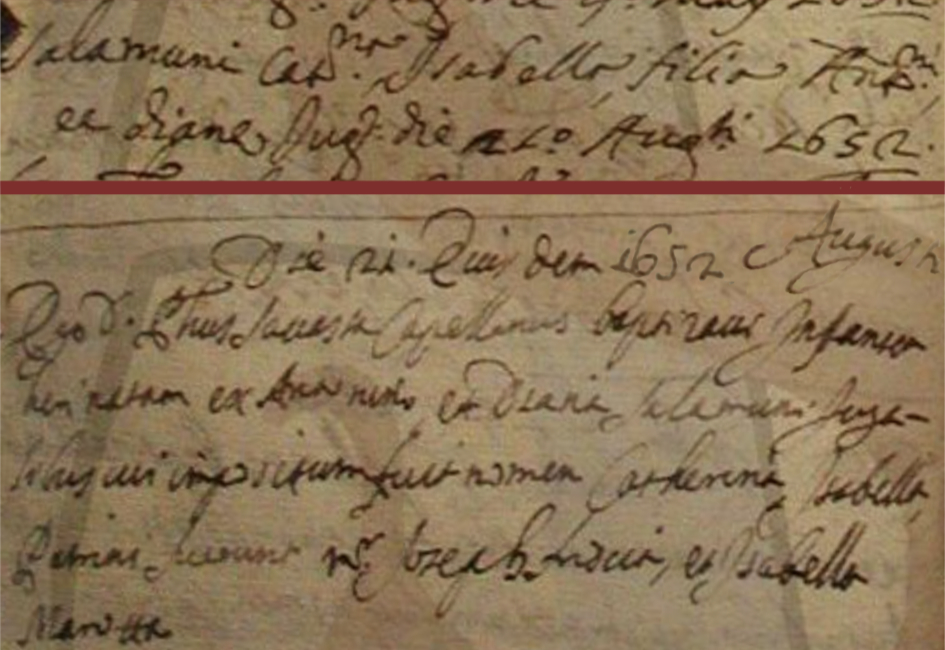 Salamuni Cat.na Isabella filia Ant.ni
et Diane Jug: die 21º Aug.ti 1652.
Die 21. Eius dem 1652 Augusti
Ego D. Capellanus baptizavi Infantem
heri natam ex Antonino, et Diana Salamuni Juga-
libus cui impositum fuit nomen Catherina Isabella,
Patrini fuerunt m.r Joseph et Isabella
Marotta